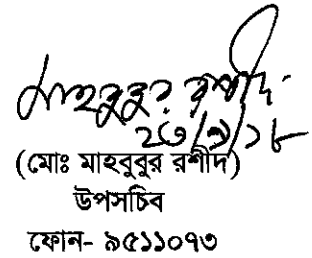 মাহবুবুর রশীদ
২৩/৯/১৮
(মোঃ মাহবুবুর রশীদ)
উপসচিব
ফোন- ৯৫১১০৭৩